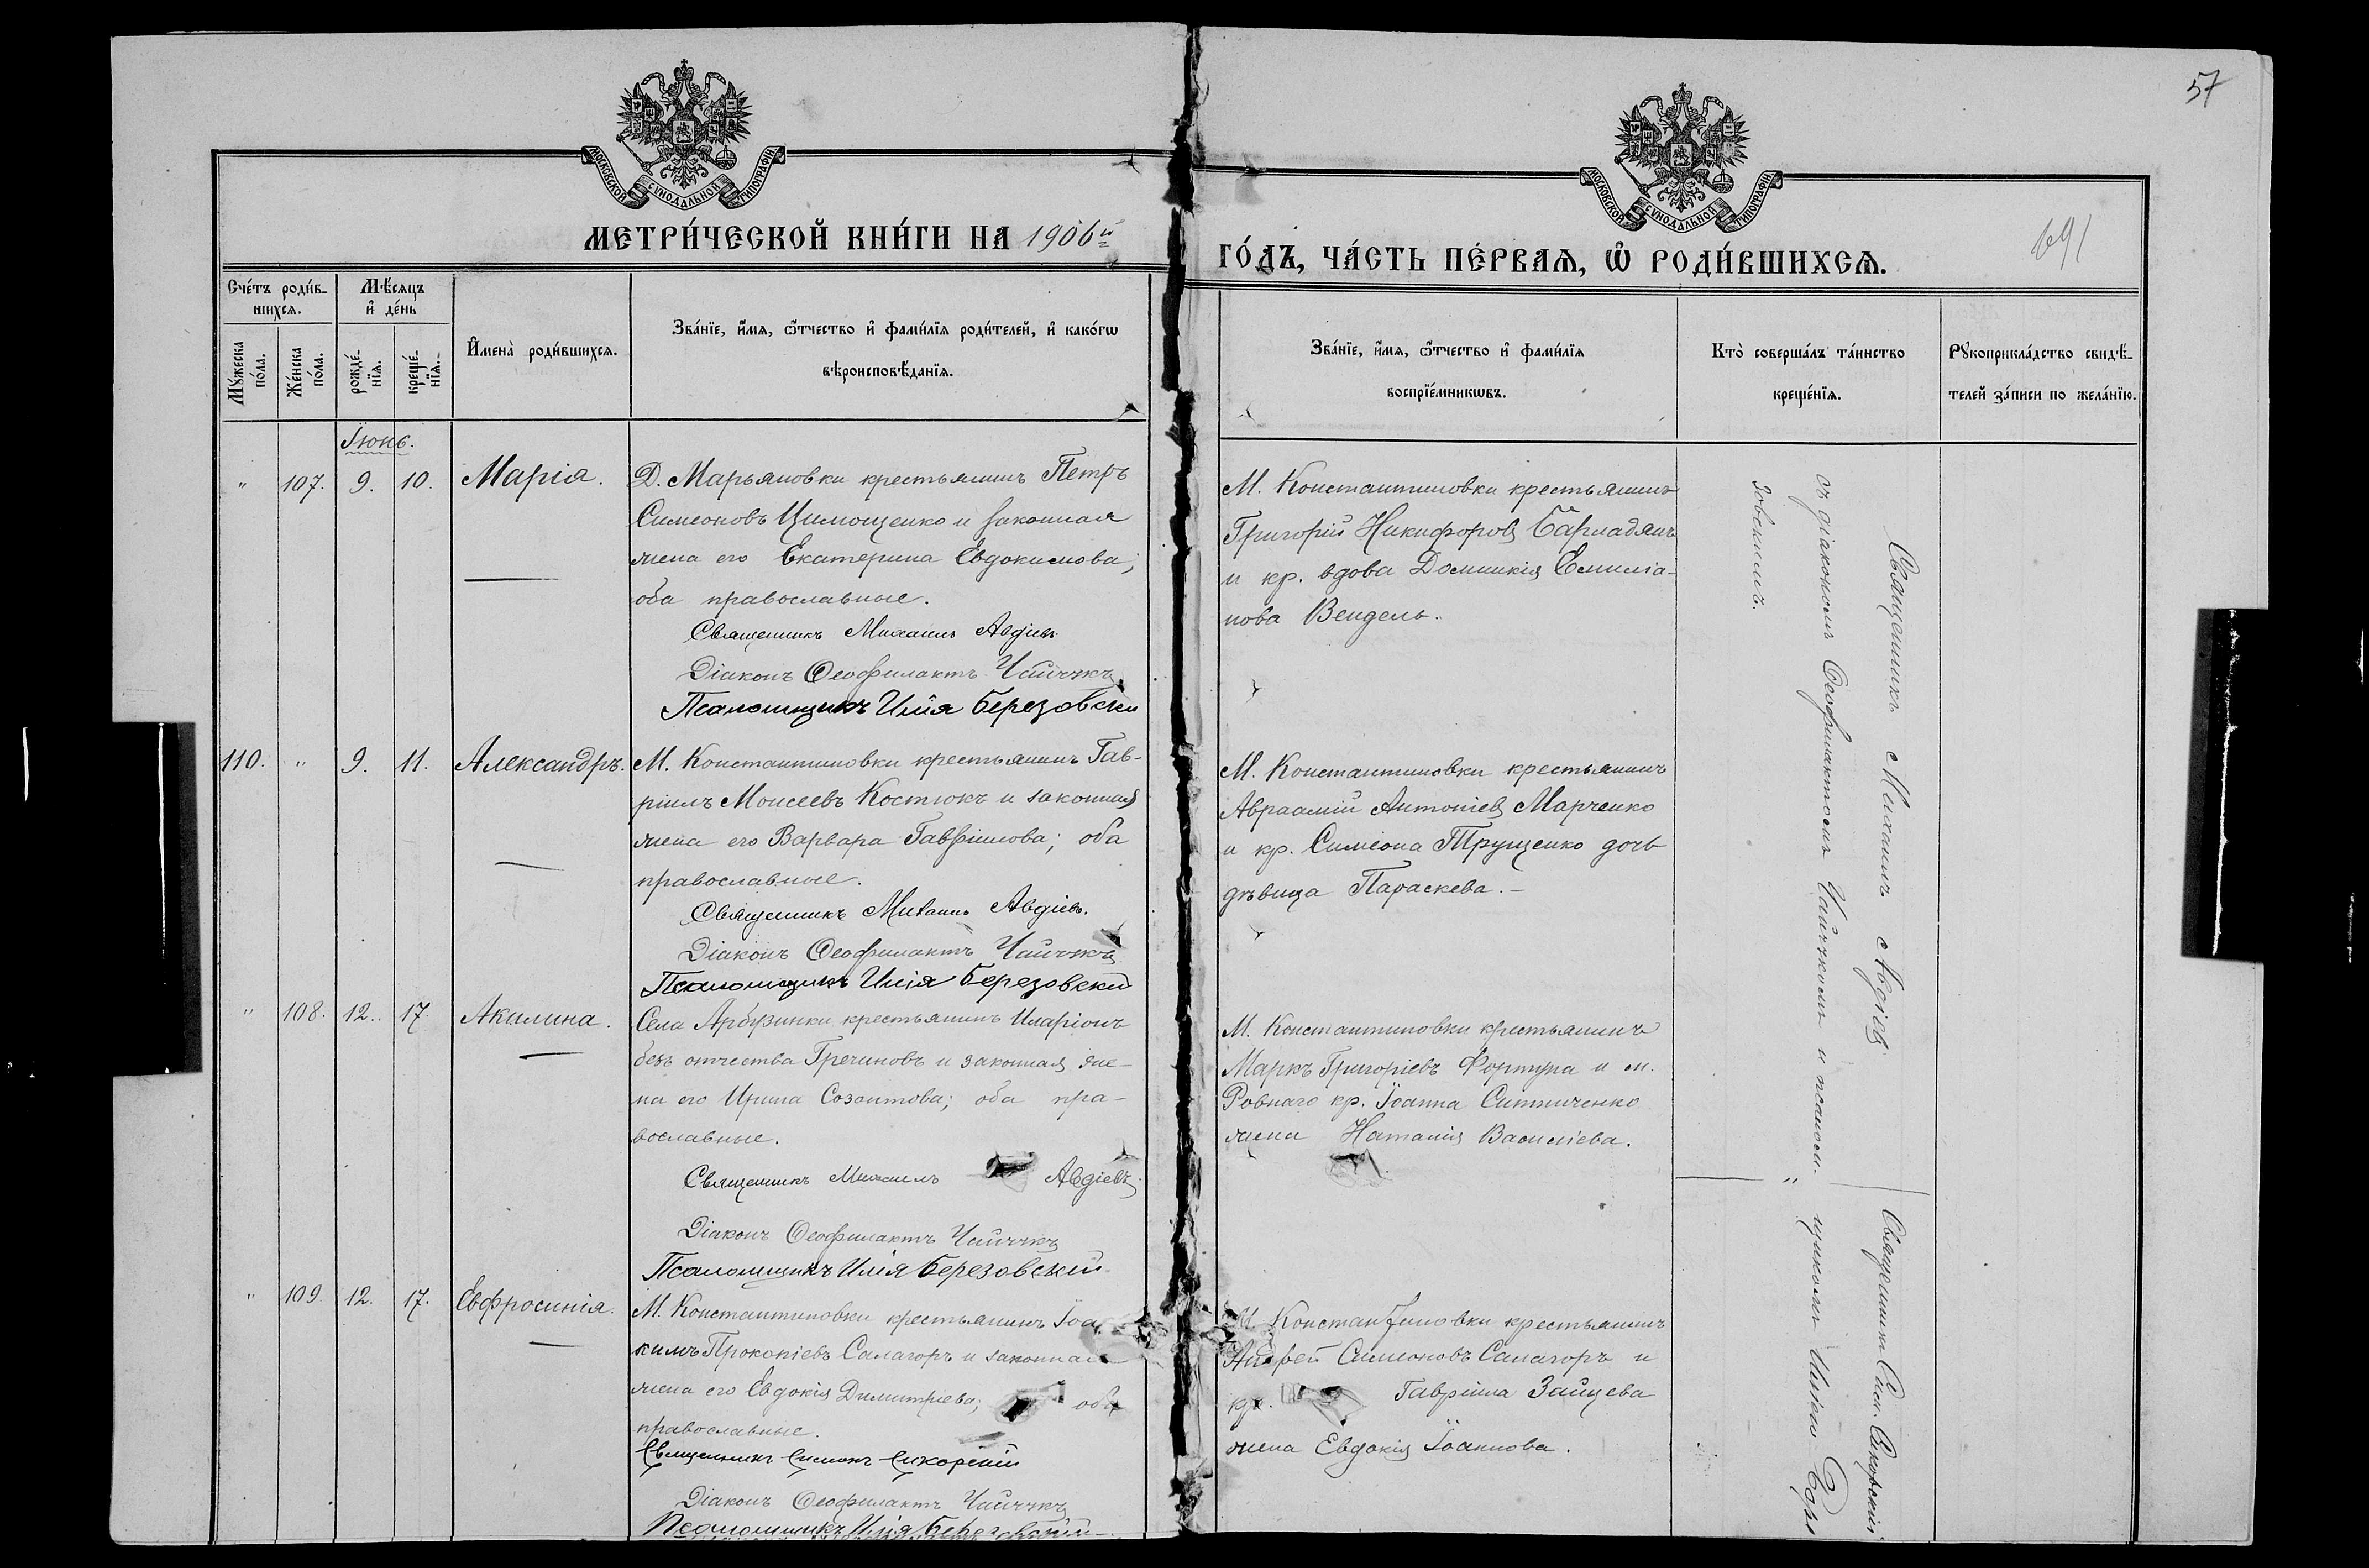 57
МОСКОВСКОЙ СѴНОДАЛЬНОЙ ТИПОГРАФІИ
МОСКОВСКОЙ СѴНОДАЛЬНОЙ ТИПОГРАФІИ
МЕТРИ́ЧЕСКОЙ КНИ́ГИ НА 1906й
ГО́ДЪ, ЧА́СТЬ ПЕ́РВАѦ, Ѡ҆ РОДИ́ВШИХСѦ.
691
Сче́тъ роди́в-
шихсѧ.
Мꙋ́жеска по́ла.
Же́нска по́ла.
Мѣ́сяцъ
и҆ де́нь
рожде́-
нїѧ.
креще́-
нїѧ.
И҆мена̀ роди́вшихсѧ.
Зва́нїе, и҆́мѧ, ѻ҆́тчество и҆ фами́лїѧ роди́телей, и҆ како́гѡ
вѣроисповѣ́данїѧ.
Зва́нїе, и҆́мѧ, ѻ҆́тчество и҆ фами́лїѧ
воспрїе́мникѡвъ.
Кто̀ соверша́лъ та́инство
креще́нїѧ.
Рꙋкоприкла́дство свидѣ́-
телей за́писи по жела́нїю.
Іюнь.
" 107. 9. 10. Марія.
Д. Марьяновки крестьянинъ Петръ
Симеоновъ Цимощенко и законная
жена его Екатерина Евдокимова;
оба православные.
Священникъ Михаилъ Авдіевъ
Діаконъ Ѳеофилактъ Чайчукъ
Псаломщикъ Илія Березовскій
М. Константиновки крестьянинъ
Григорій Никифоровъ Барладянъ
и кр. вдова Домникія Емиліа-
нова Вендель.
110. " 9. 11. Александръ.
М. Константиновки крестьянинъ Гав-
ріилъ Моисеевъ Костюкъ и законная
жена его Варвара Гавріилова; оба
православные.
Священникъ Михаилъ Авдіевъ.
Діаконъ Ѳеофилактъ Чайчукъ
Псаломщикъ Илія Березовскій
М. Константиновки крестьянинъ
Авраамій Антоніевъ Марченко
и кр. Симеона Трущенко дочь
дѣвица Параскева.–
" 108. 12. 17. Акилина.
Села Арбузинки крестьянинъ Иларіонъ
безъ отчества Гречиновъ и законная же-
на его Ирина Созонтова; оба пра-
вославные.
Священникъ Михаилъ Авдіевъ
Діаконъ Ѳеофилактъ Чайчукъ
Псаломщикъ Илія Березовскій
М. Константиновки крестьянинъ
Маркъ Григоріевъ Фортуна и м.
Ровнаго кр. Іоанна Ситниченко
жена Наталія Василіева.
" 109. 12. 17. Евфросинія.
М. Константиновки крестьянинъ Іоа
кимъ Прокопіевъ Салагоръ и законная
жена его Евдокія Димитріева; оба
православные.
Священникъ Симонъ Сикорскій
Діаконъ Ѳеофилактъ Чайчукъ
Псаломщикъ Илія Березовскій
М. Константиновки крестьянинъ
Андрей Симеоновъ Салагоръ и
кр. Гавріила Зайцева
жена Евдокія Іоаннова.
Священникъ Михаилъ Авдіевъ
съ діакономъ Ѳеофилактомъ Чайчукомъ и псалом-
Священникъ Сим. Сикорскій
щикомъ Иліею Бере
зовскимъ.